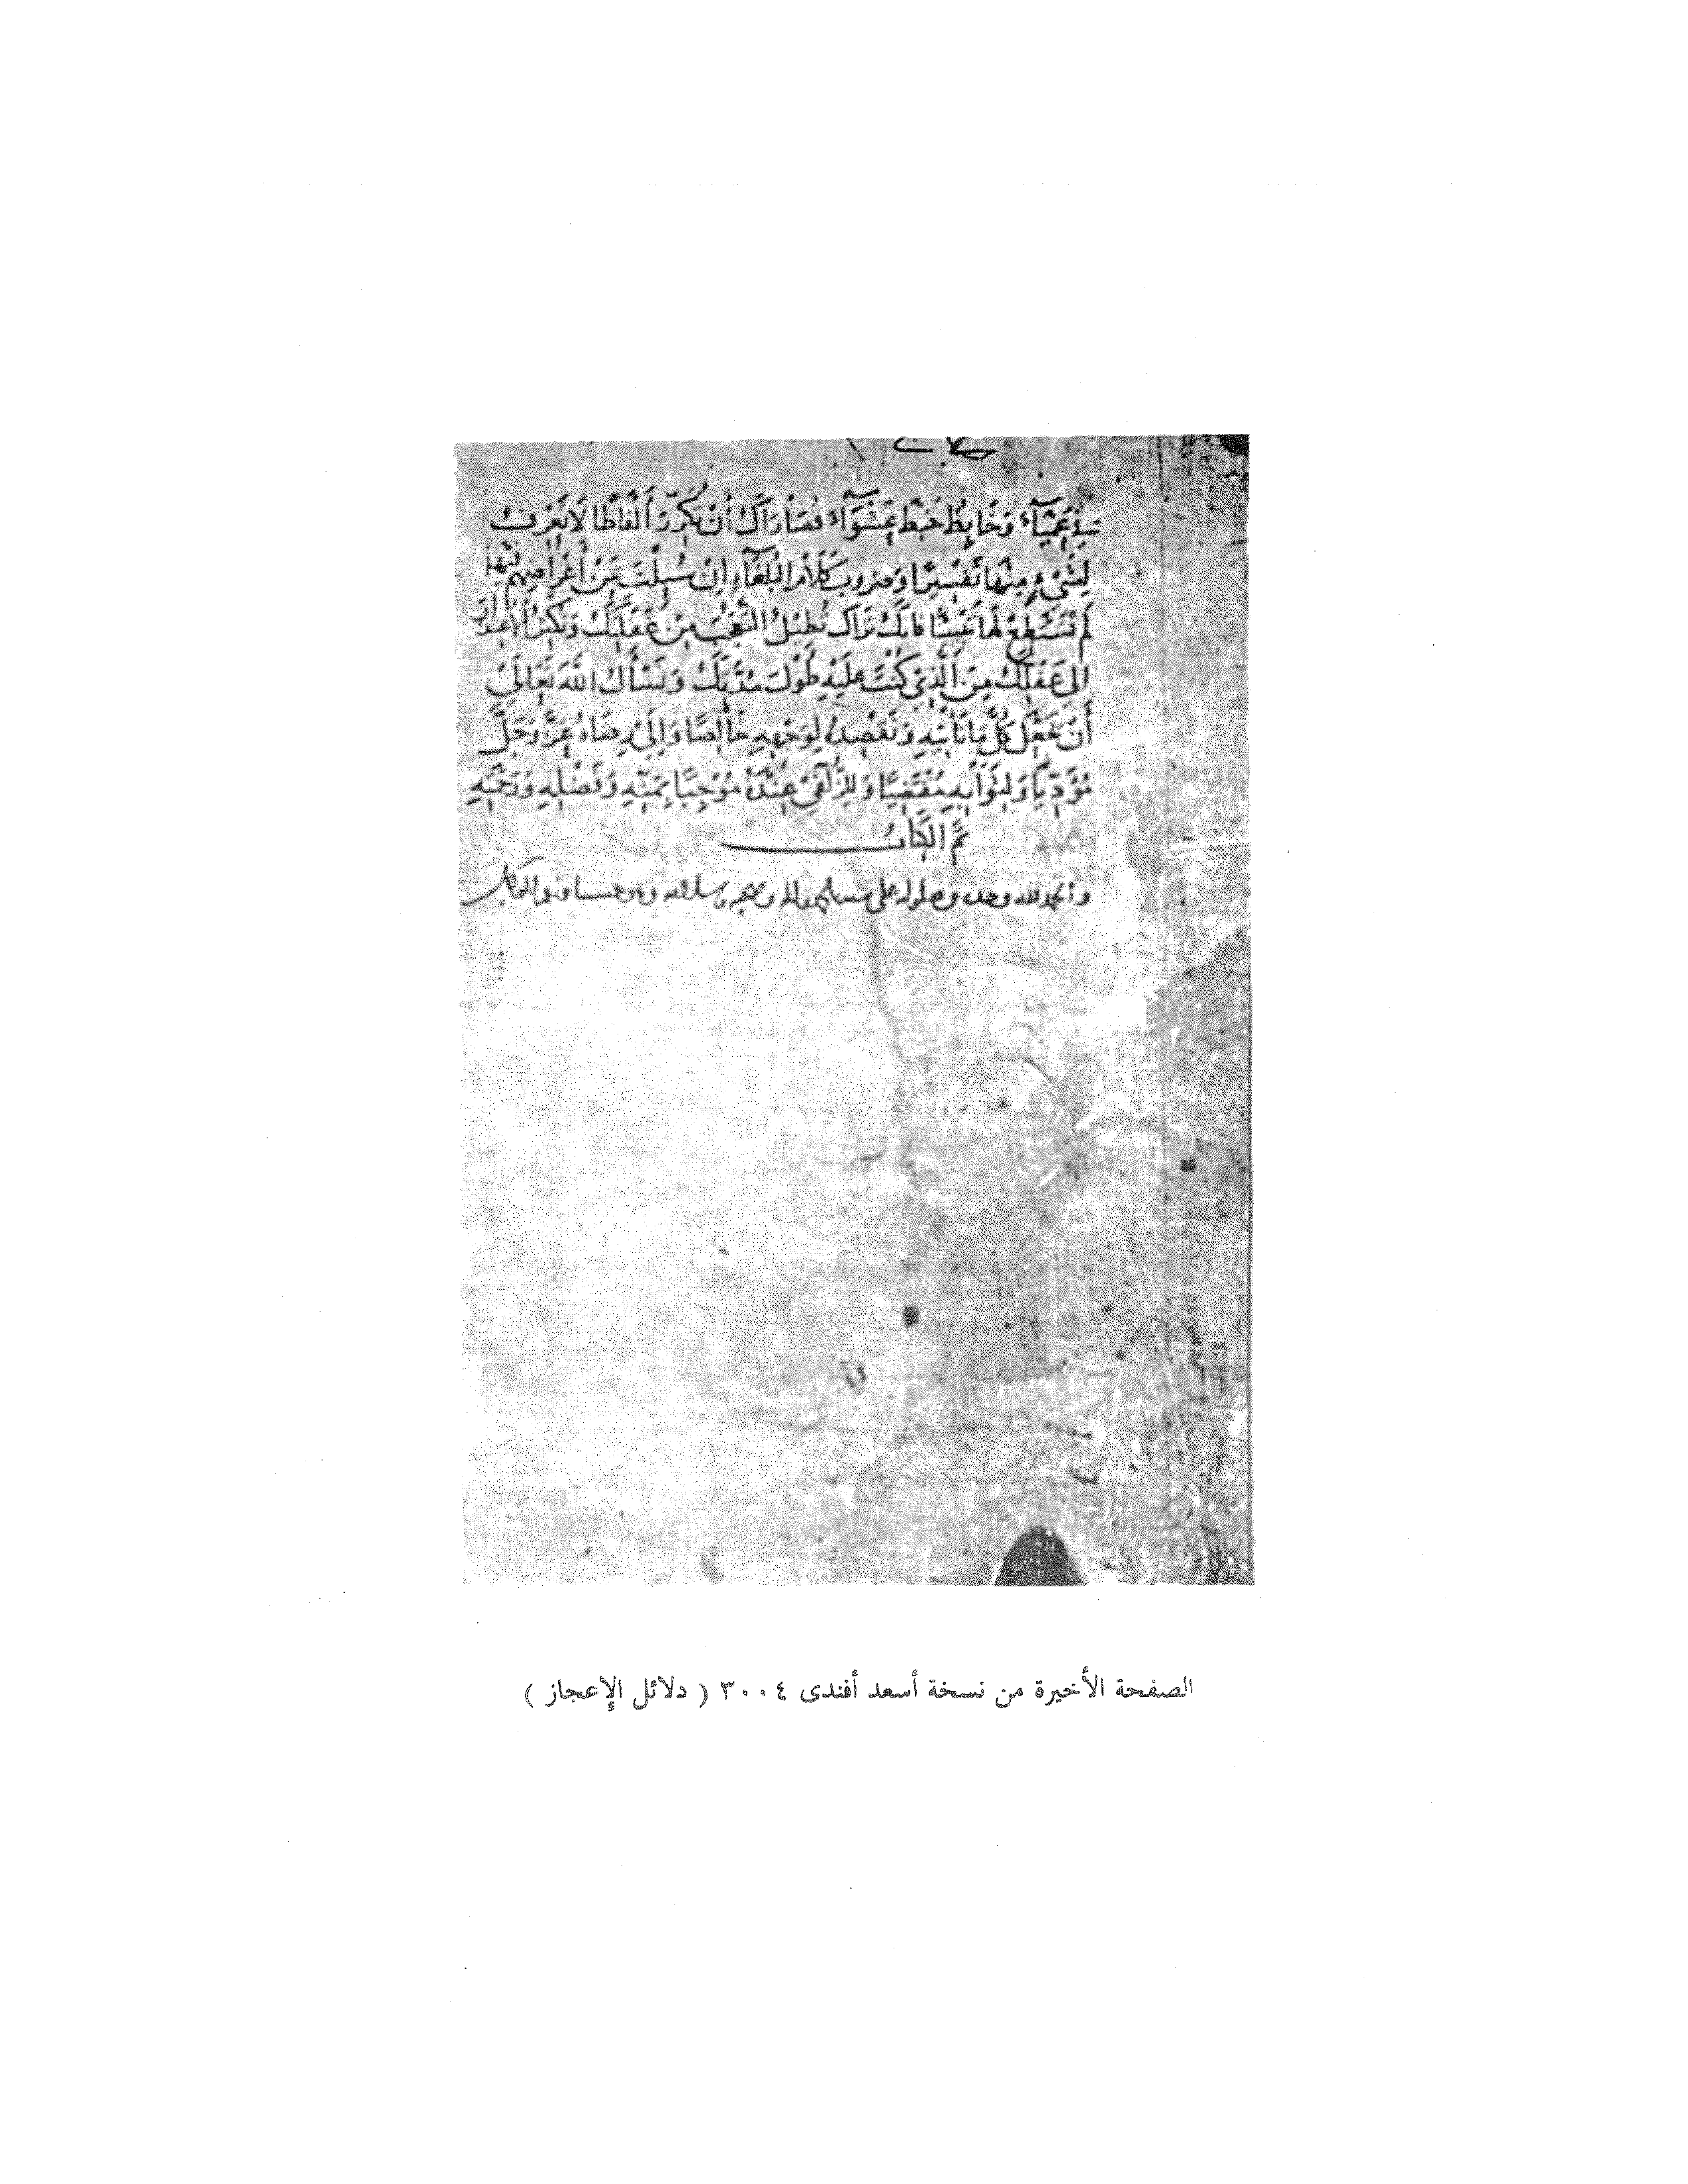 عَمْيَآءَ وَخَابِطُ خَبْطَ عَشْوَآءَ قُصَارَاكَ أَنْ تُكَرِّرَ أَلْفَاظًا لَا تَعْرِفُ
لِشَيْءٍ مِنْهَا تَفْسِيرًا وَضُرُوبَ كَلَامِ البُلَغَآءِ إِنْ سُئِلْتَ عَنْ أَغْرَاضِهِمْ فِيهَا
لَمْ تَسْتَطِعْ لَهَا تَبْيِينًا فَإِنَّكَ تَرَاكَ تُطِيلُ التَّعَجُّبَ مِنْ غَفْلَتِكَ وَتُكْثِرُ الاعْتِذَارَ
إِلَى عَقْلِكَ مِنَ الَّذِي كُنْتَ عَلَيْهِ طُولَ مُدَّتِكَ وَنَسْأَلُ اللهَ تَعَالَى
أَنْ يَجْعَلَ كُلَّ مَا نَأْتِيهِ وَنَقْصِدُهُ لِوَجْهِهِ خَالِصًا وَإِلَى رِضَاهُ عَزَّ وَجَلَّ
مُؤَدِّيًا وَلِثَوَابِهِ مُقْتَضِيًا وَلِلزُّلْفَى عِنْدَهُ مُوجِبًا بِمَنِّهِ وَفَضْلِهِ وَرَحْمَتِهِ
تَمَّ الكِتَابُ
والحمد لله وحده وصلواته على محمد وآله وصحبه وسلامه وهو حسبنا ونعم الوكيل
الصفحة الأخيرة من نسخة أسعد أفندى ٣٠٠٤ ( دلائل الإعجاز )